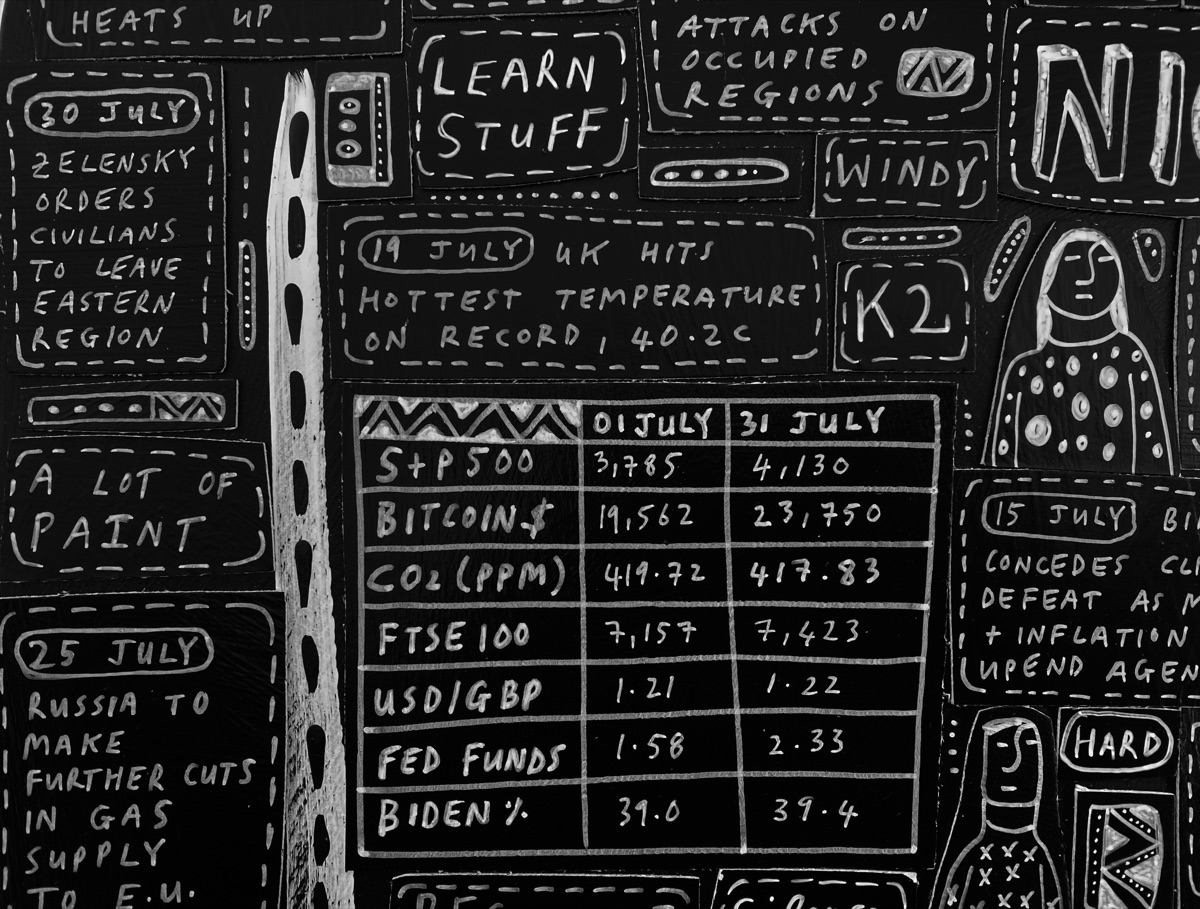 HEATS UP
30 JULY
ZELENSKY
ORDERS
CIVILIANS
TO LEAVE
EASTERN
REGION
A LOT OF
PAINT
25 JULY
RUSSIA TO
MAKE
FURTHER CUTS
IN GAS
SUPPLY
TO E.U.
LEARN
STUFF
ATTACKS ON
OCCUPIED
REGIONS
WINDY
19 JULY UK HITS
HOTTEST TEMPERATURE
ON RECORD, 40.2C
K2
01 JULY 31 JULY
S+P 500 3,785 4,130
BITCOIN $ 19,562 23,750
CO2 (PPM) 419.72 417.83
FTSE 100 7,157 7,423
USD/GBP 1.21 1.22
FED FUNDS 1.58 2.33
BIDEN % 39.0 39.4
15 JULY BI
CONCEDES CLI
DEFEAT AS M
+ INFLATION
UPEND AGEN
HARD